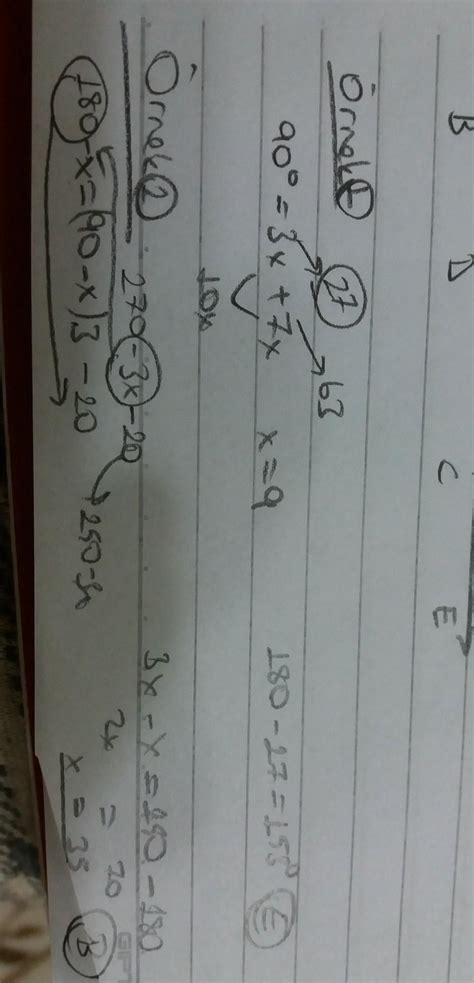 B D C E
Örnek 1
27 63
90° = 3x + 7x x = 9 180 - 27 = 153° E
10x
Örnek 2 270 - 3x - 20 3x - x = 250 - 180
180 - x = (90 - x)3 - 20 250 - 3x 2x = 70
x = 35 B